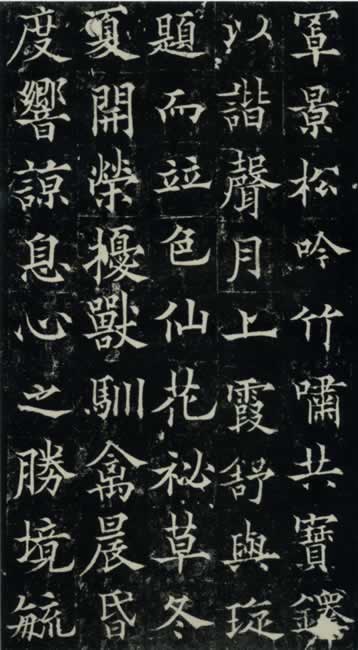 罩景松吟竹嘯共寶鐸
以諧聲月上霞舒與琁
題而竝色仙花祕草冬
夏開榮擾獸馴禽晨昏
度響諒息心之勝境毓